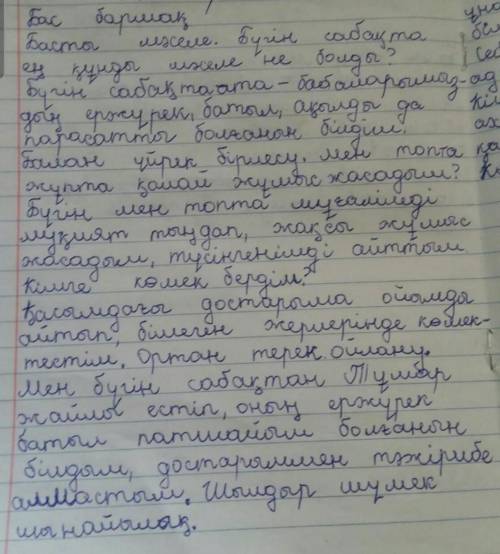 Бас бармақ
Басты мәселе. Бүгін сабақта
ең құнды мәселе не болды?
Бүгін сабақта ата-бабаларымыз-
дың ержүрек, батыл, ақылды да
парасатты болғанын білдім.
Балан үйрек бірлесу. Мен топта
жұпта қалай жұмыс жасадым?
Бүгін мен топта мұғалімді
мұқият тыңдап, жақсы жұмыс
жасадым, түсінгенімді айттым
Кімге көмек бердім?
Қасымдағы достарыма ойымды
айтып, білмеген жерлерінде көмек-
тестім. Ортан терек ойлану.
Мен бүгін сабақтан Тұмар
жайлы естіп, оның ержүрек
батыл патшайым болғанын
білдым, достарыммен тәжірибе
алмастым. Шылдыр шүмек
шынайылық.